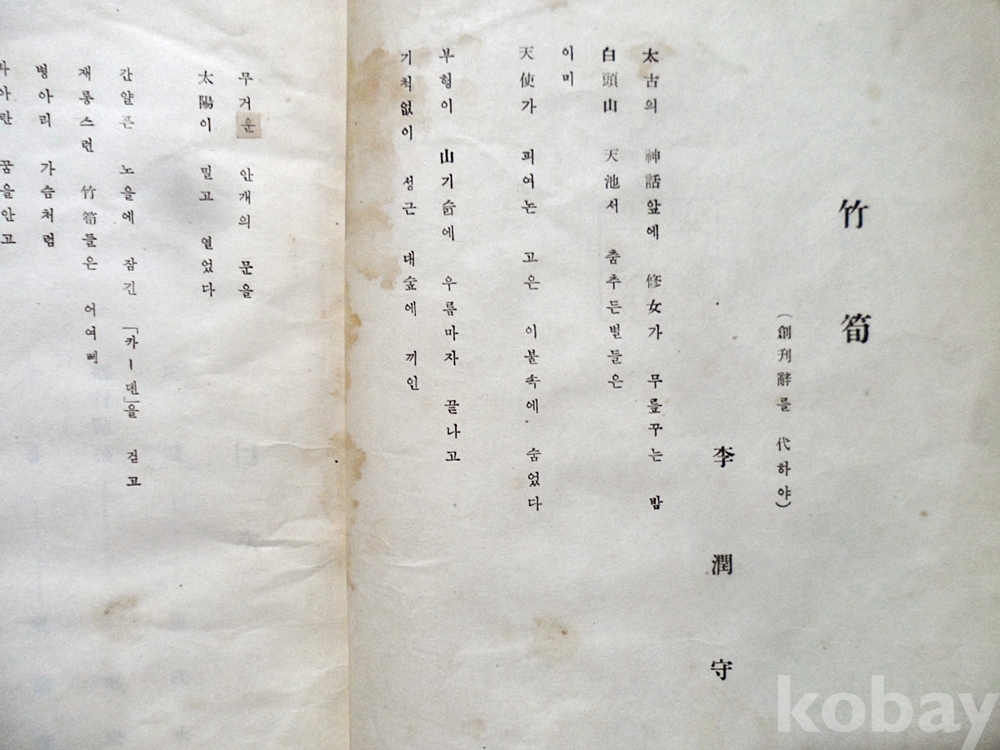 竹筍
(創刊辭를 代하야)
李潤守
太古의 神話앞에 修女가 무릎꾸는 밤
白頭山 天池서 춤추든별들은
이미
天使가 펴여논 고은 이불속에 숨었다
부헝이 山기슭에 우름마자 끝나고
기척없이 성근 대숲에 끼인
무거운 안개의 문을
太陽이 밀고 열었다
간얄픈 노을에 잠긴 「카ー덴」을 걷고
재롱스런 竹筍들은 어여뻐
병아리 가슴처럼
파아란 꿈을안고
kobay